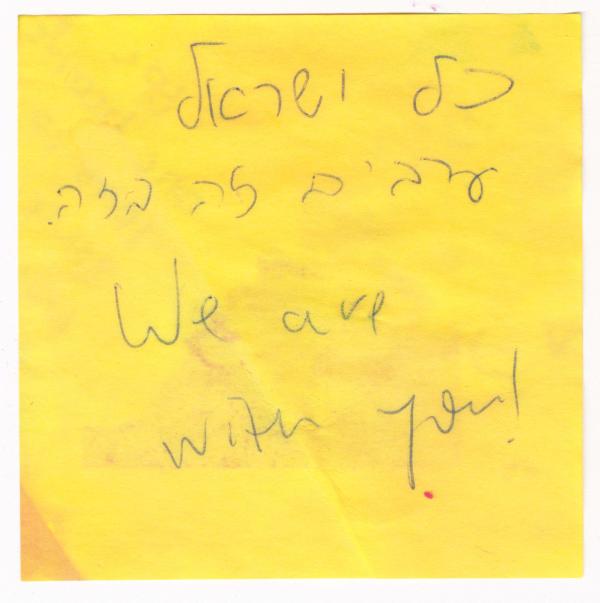 כל ישראל
ערבים זה בזה.
We are
with you!